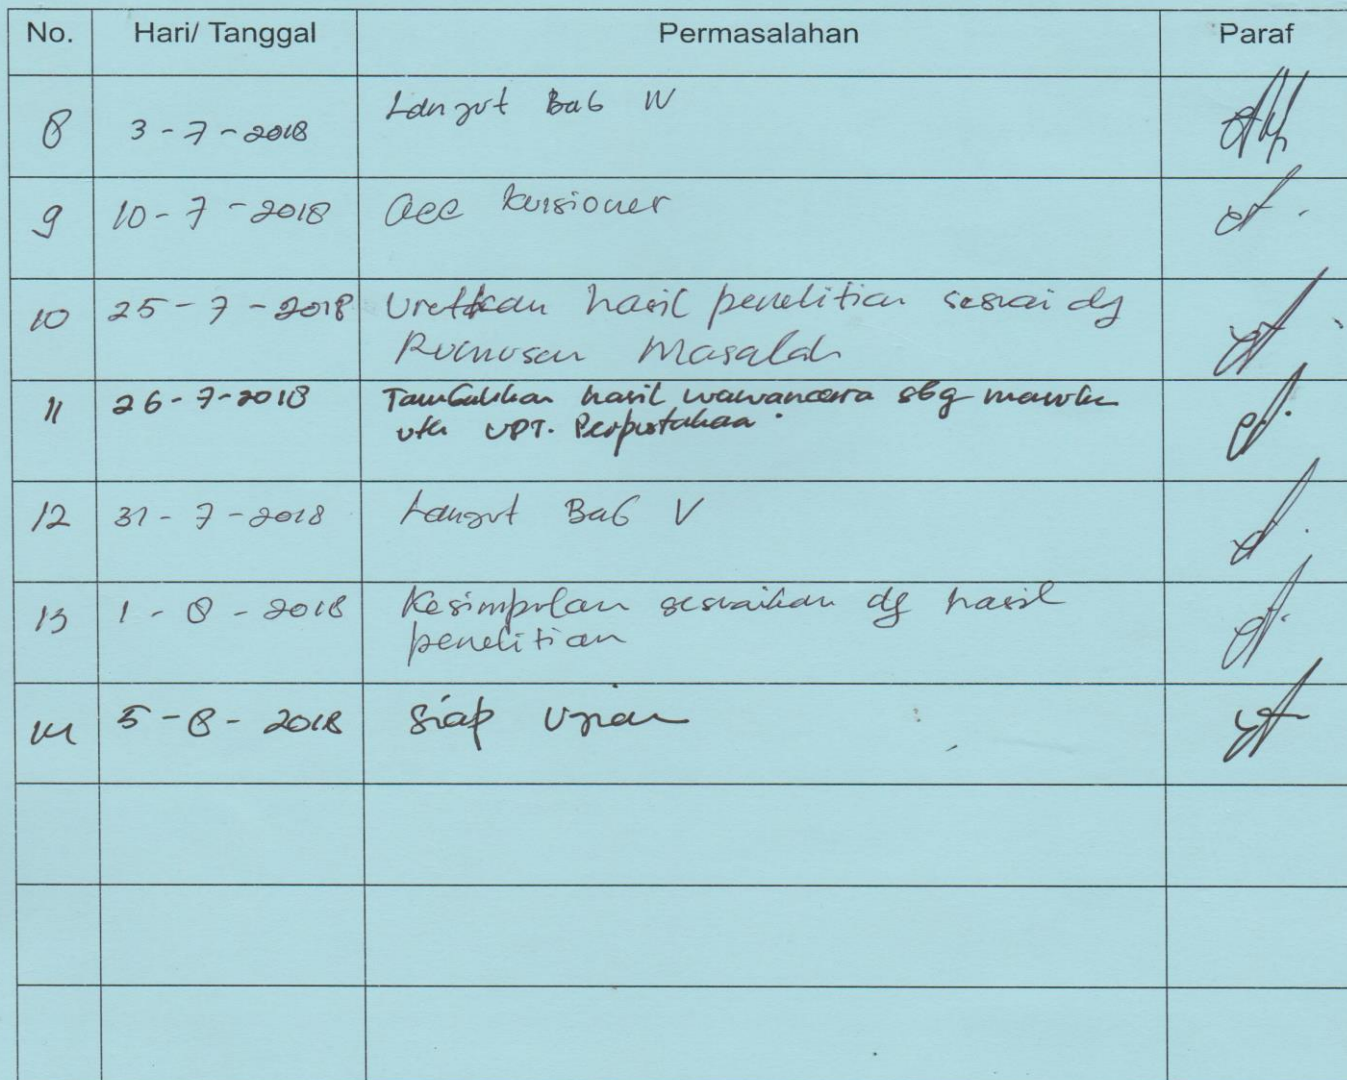 No. Hari/ Tanggal Permasalahan Paraf
8 3-7-2018 Lanjut Bab IV
9 10-7-2018 acc kuisioner
10 25-7-2018 Uretkan hasil penelitian sesuai dg
Rumusan Masalah
11 26-7-2018 Tambahkan hasil wawancara sbg
utk UPT. Perpustakaan.
12 31-7-2018 Lanjut Bab V
13 1-8-2018 Kesimpulan sesuaikan dg hasil
penelitian
14 5-8-2018 Siap Ujian